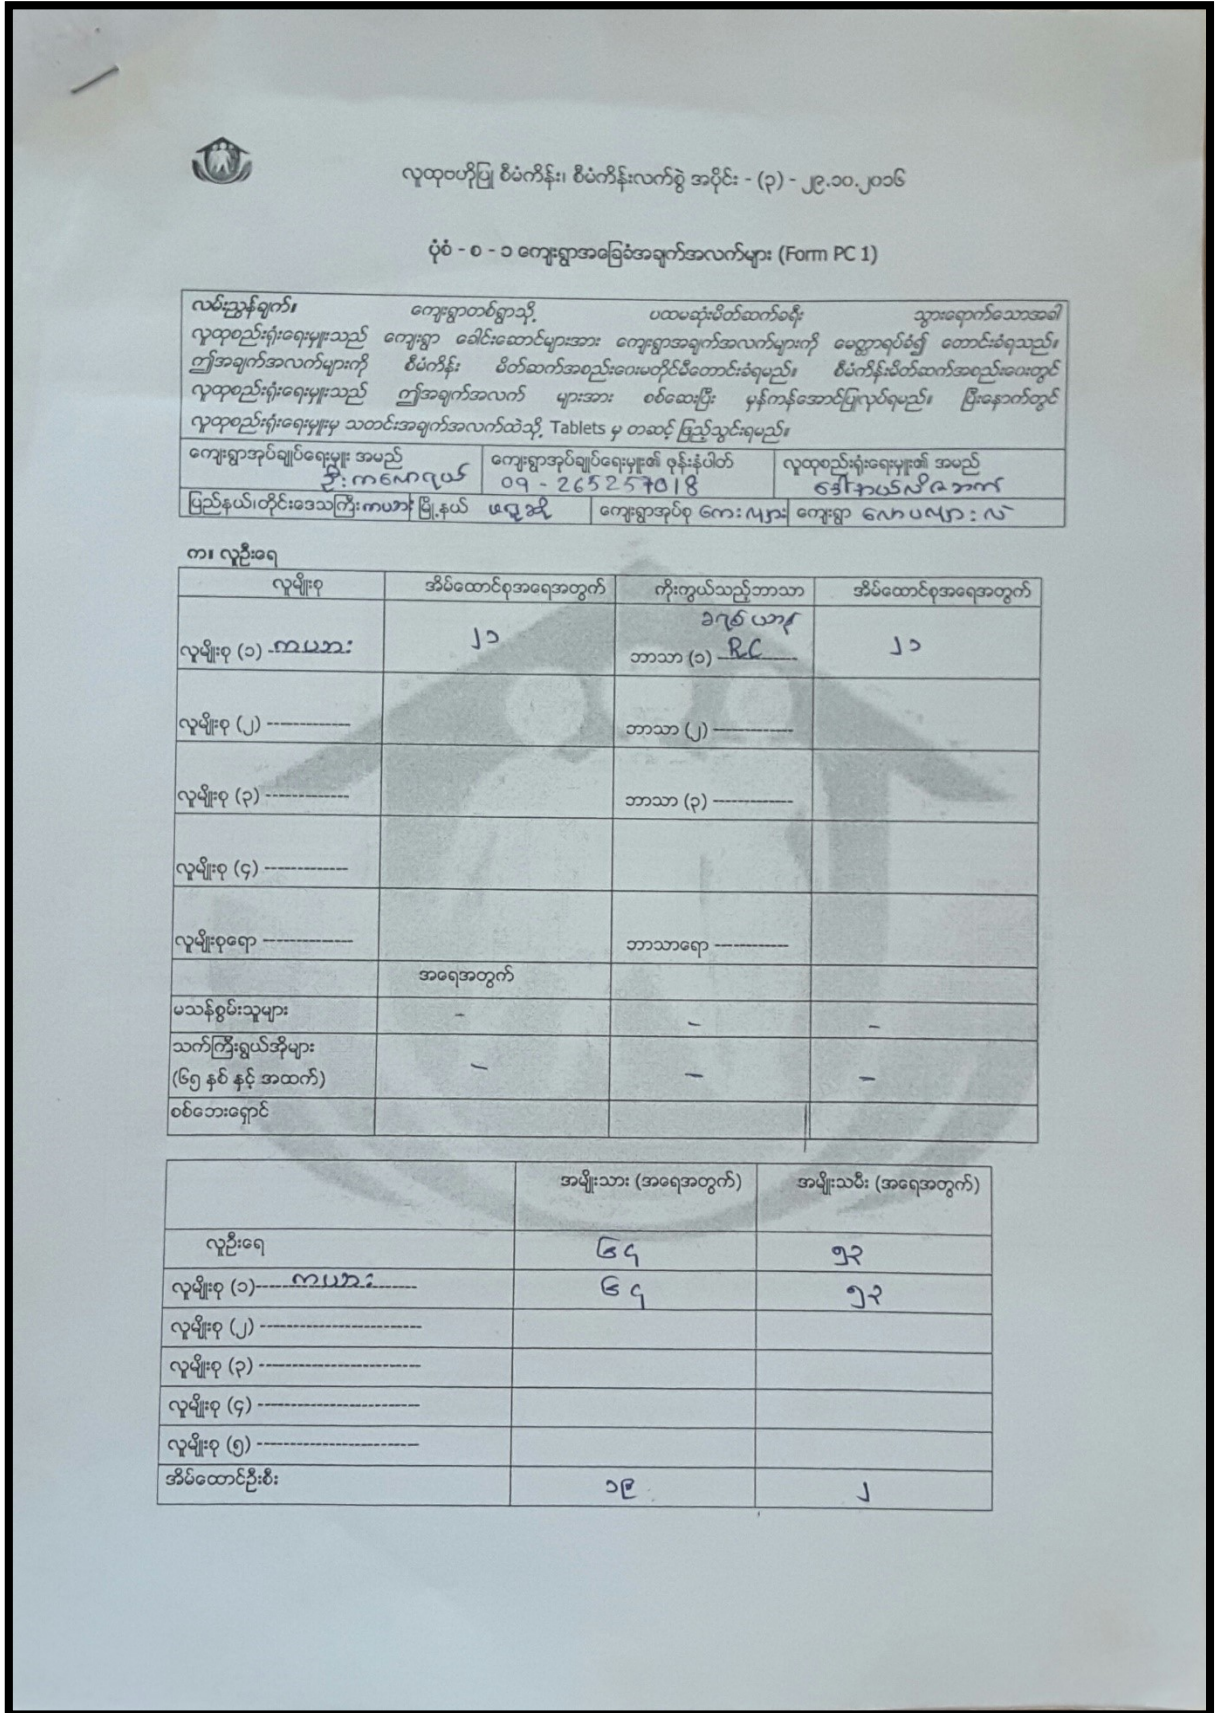 လူထုဗဟိုပြု စီမံကိန်း၊ စီမံကိန်းလက်စွဲ အပိုင်း - (၃) - ၂၉.၁၀.၂၀၁၆
ပုံစံ - စ - ၁ ကျေးရွာအခြေခံအချက်အလက်များ (Form PC 1)
လမ်းညွှန်ချက်။ ကျေးရွာတစ်ရွာသို့ ပထမဆုံးမိတ်ဆက်ခရီး သွားရောက်သောအခါ
လူထုစည်းရုံးရေးမှူးသည် ကျေးရွာ ခေါင်းဆောင်များအား ကျေးရွာအချက်အလက်များကို မေတ္တာရပ်ခံ၍ တောင်းခံရသည်။
ဤအချက်အလက်များကို စီမံကိန်း မိတ်ဆက်အစည်းဝေးမတိုင်မီတောင်းခံရမည်။ စီမံကိန်းမိတ်ဆက်အစည်းဝေးတွင်
လူထုစည်းရုံးရေးမှူးသည် ဤအချက်အလက် များအား စစ်ဆေးပြီး မှန်ကန်အောင်ပြုလုပ်ရမည်။ ပြီးနောက်တွင်
လူထုစည်းရုံးရေးမှူးမှ သတင်းအချက်အလက်ထဲသို့ Tablets မှ တဆင့် ဖြည့်သွင်းရမည်။
ကျေးရွာအုပ်ချုပ်ရေးမှူး အမည် ကျေးရွာအုပ်ချုပ်ရေးမှူး၏ ဖုန်းနံပါတ် လူထုစည်းရုံးရေးမှူး၏ အမည်
ဦးကလောရယ် 09 - 265257018 ဒေါ်နယ်လီဇဘက်
ပြည်နယ်၊တိုင်းဒေသကြီး ကယား မြို့နယ် ဖရူဆို ကျေးရွာအုပ်စု ကေးလျား ကျေးရွာ လောပလျားလဲ
က။ လူဦးရေ
လူမျိုးစု အိမ်ထောင်စုအရေအတွက် ကိုးကွယ်သည့်ဘာသာ အိမ်ထောင်စုအရေအတွက်
ခရစ်ယာန်
လူမျိုးစု (၁) ကယား ၂၁ ဘာသာ (၁) RC ၂၁
လူမျိုးစု (၂) ------------- ဘာသာ (၂) -------------
လူမျိုးစု (၃) ------------- ဘာသာ (၃) -------------
လူမျိုးစု (၄) -------------
လူမျိုးစုရော -------------- ဘာသာရော ------------
အရေအတွက်
မသန်စွမ်းသူများ - - -
သက်ကြီးရွယ်အိုများ
(၆၅ နှစ် နှင့် အထက်) - - -
စစ်ဘေးရှောင်
အမျိုးသား (အရေအတွက်) အမျိုးသမီး (အရေအတွက်)
လူဦးရေ ၆၄ ၅၃
လူမျိုးစု (၁) ကယား ၆၄ ၅၃
လူမျိုးစု (၂) --------------------------
လူမျိုးစု (၃) --------------------------
လူမျိုးစု (၄) --------------------------
လူမျိုးစု (၅) --------------------------
အိမ်ထောင်ဦးစီး ၁၉ ၂